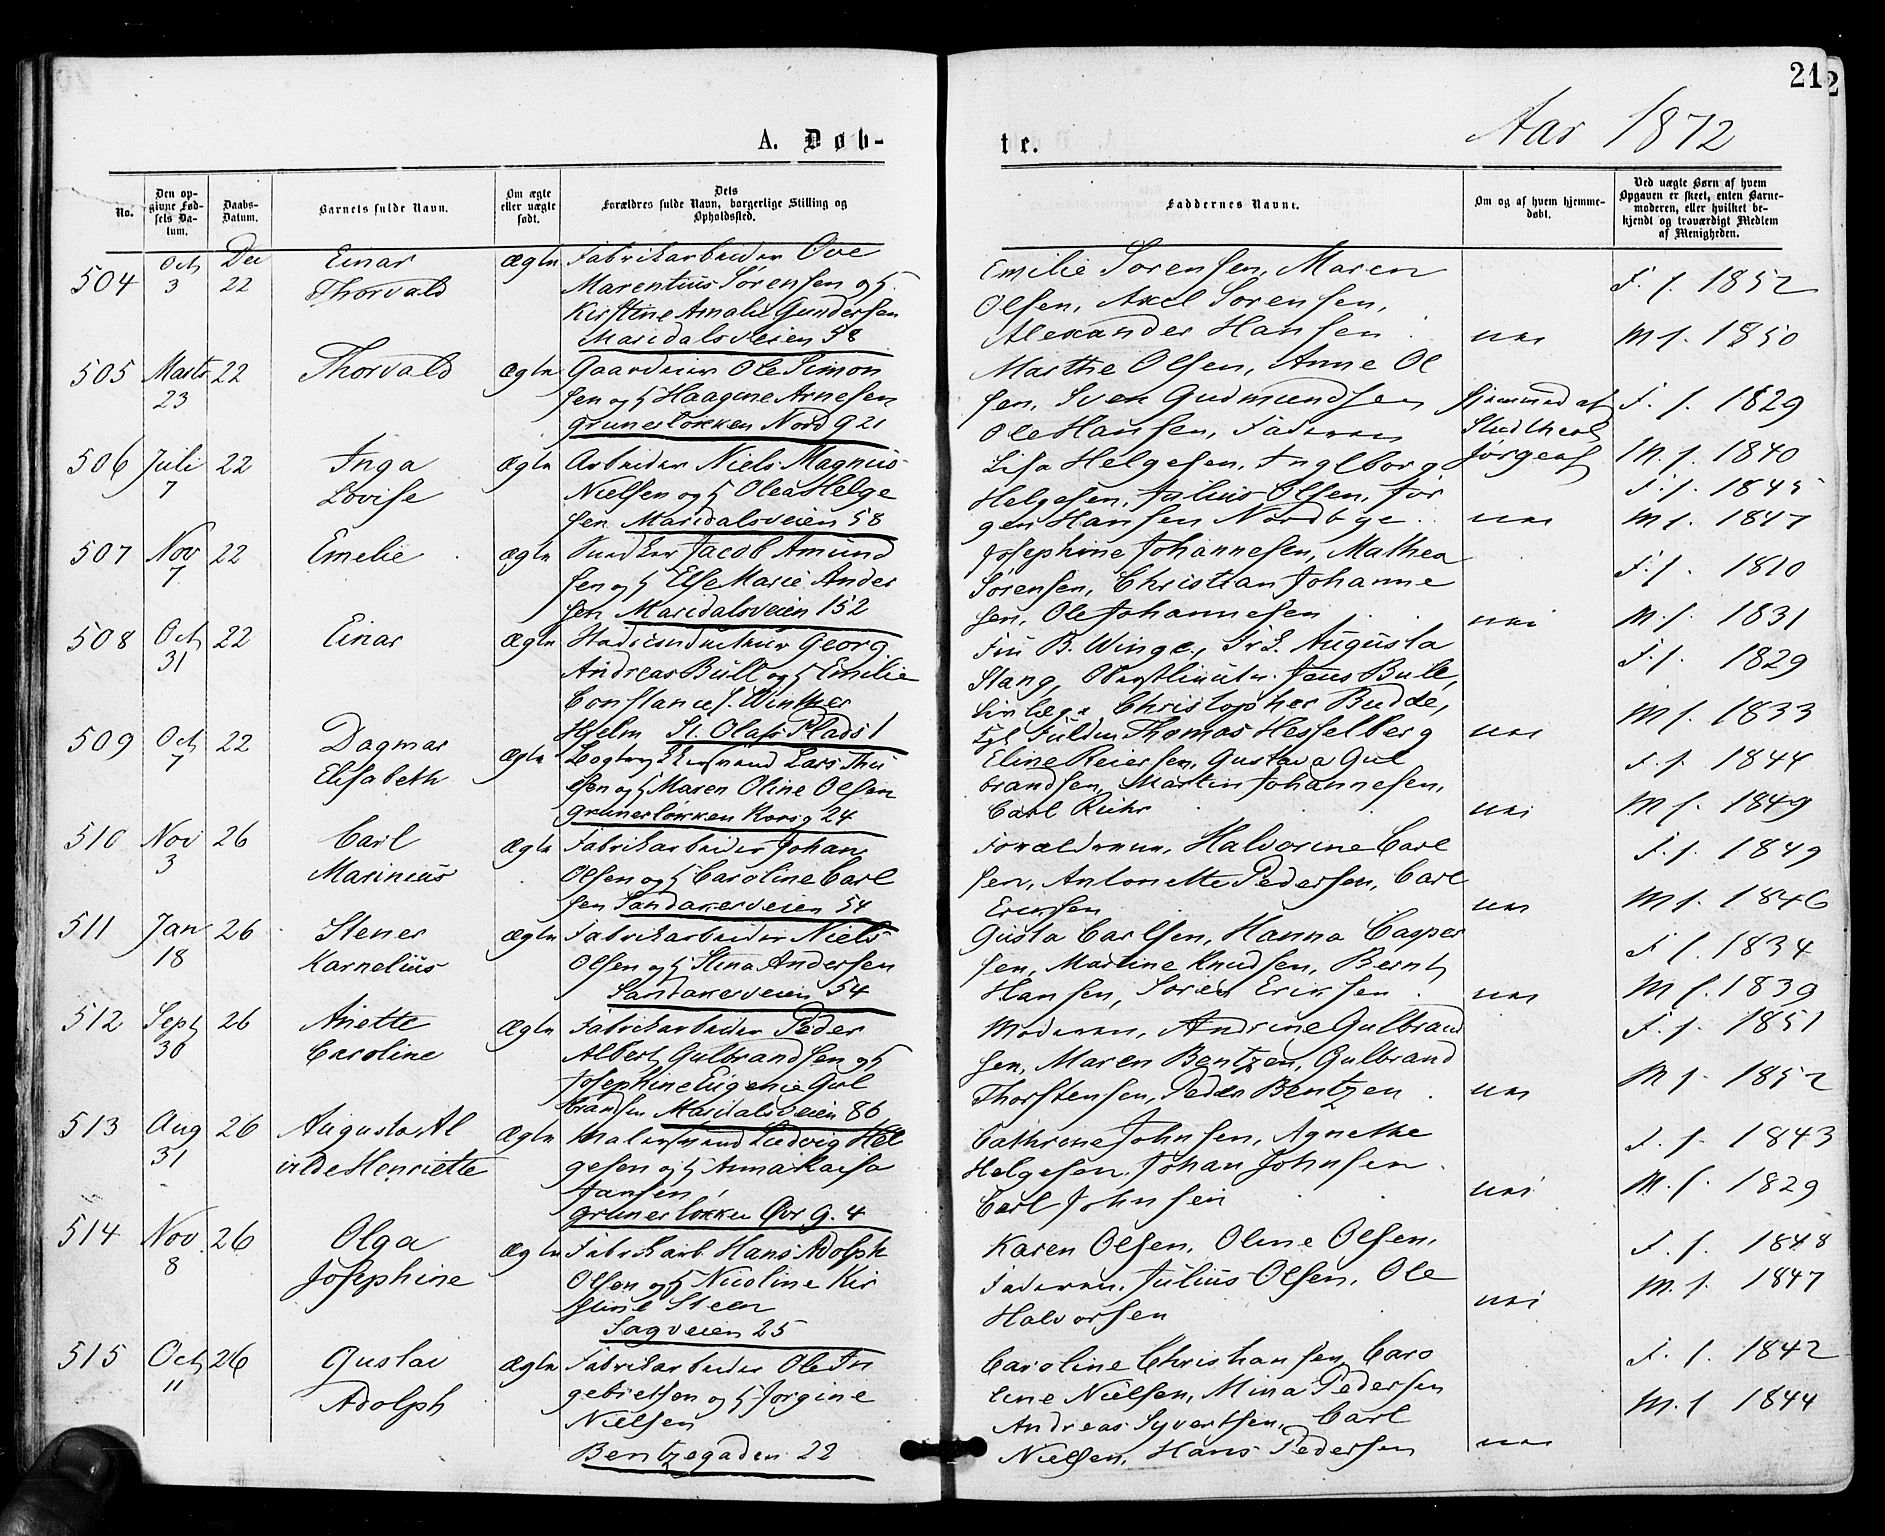 212
Aar 1872
A. Døb-
te.
No.
Den op-
givne Fød-
sels Da-
tum.
Daabs-
Datum.
Barnets fulde Navn.
Om ægte
eller uægte
født.
Dets
Forældres fulde Navn, borgerlige Stilling og
Opholdssted.
Faddernes Navne.
Om og af hvem hjemme-
døbt.
Ved uægte Børn af hvem
Opgaven er skeet, enten Barne-
moderen, eller hvilket be-
kjendt og troværdigt Medlem
af Menigheden.
504 Oct 3 Dec 22 Einar
Thorvald
Ægte
Fabrikarbeider Ove
Marentius Sørensen og H.
Kirstine Amalie Gundersen
Maridalsveien 58
Emilie Sørensen, Maren
Olsen, Axel Sørensen,
Alexander Hansen
nei
F. f. 1852
M f. 1850
505 Marts 23 22 Thorvald
Ægte
Gaardeier Ole Simon
sen og H Haagine Arnesen
Grunerløkken Nord G 21
Marthe Olsen, Anne Ol
sen, Sven Gudmundsen
Ole Hansen, Faderen
hjemmed af
Stud theol
Jørgens
F. f. 1829
M. f. 1840
506 Juli 7 22 Inga
Lovise
Ægte
Arbeider Niels Magnus
Nielsen og H Olea Helge
sen Maridalsveien 58
Lisa Helgesen, Ingeborg
Helgesen, Julius Olsen, Jør
gen Hansen Nordbye
nei
F. f. 1845
M f. 1847
507 Nov 7 22 Emelie
Ægte
Snedker Jacob Amund
sen og H Else Marie Ander
sen Maridalsveien 152
Josephine Johannesen, Mathea
Sørensen, Christian Johanne
sen, Ole Johannesen
nei
F. f. 1810
M. f. 1831
508 Oct 31 22 Einar
Ægte
Stadsconducteur Georg
Andreas Bull og H Emilie
Constance J. Winther
Hjelm St. Olafs Plads 1
Fru B. Winge, Frk. Augusta
Stang, Oberstlieutn. Jens Bull,
Christopher Budde,
Thomas Hesselberg
nei
F. f. 1829
M f. 1833
509 Oct 7 22 Dagmar
Elisabeth
Ægte
Bogtrykkersvend Lars Thi
esen og H Maren Oline Olsen
Grunerløkken Korsg 24
Eline Reiersen, Gustava Gul
brandsen, Martin Johannesen,
Carl Ruhs
nei
F. f. 1844
M f. 1849
510 Nov 3 26 Carl
Marinius
Ægte
Fabrikarbeider Johan
Olsen og H Caroline Carl
sen Sandakerveien 54
Forældrene, Halvorine Carl
sen, Antonette Pedersen, Carl
Eriksen
nei
F. f. 1849
M f. 1846
511 Jan 18 26 Stener
Karnelius
Ægte
Fabrikarbeider Niels
Olsen og H Stina Andersen
Sandakerveien 54
Gusta Carlsen, Hanna Casper
sen, Martine Knudsen, Bernt
Hansen, Søren Eriksen
nei
F f. 1834
M f. 1839
512 Sept 30 26 Anette
Caroline
Ægte
Fabrikarbeider Peder
Albert Gulbrandsen og H
Josephine Eugenie Gul
brandsen Maridalsveien 86
Moderen, Andrine Gulbrand
sen, Maren Bentzen, Gulbrand
Thorstensen, Peder Bentzen
nei
F. f. 1851
M f. 1852
513 Aug 31 26 Augusta Al
vilde Henriette
Ægte
Malersvend Ludvig Hel
gesen og H Anna Kaisa
Jansen
Grunerløkken Øvr G. 4
Cathrine Johnsen, Agnethe
Helgesen, Johan Johnsen
Carl Johnsen
nei
F. f. 1843
M. f. 1829
514 Nov 8 26 Olga
Josephine
Ægte
Fabrikarb. Hans Adolph
Olsen og H Nicoline Kir
stine Steen
Sagveien 25
Karen Olsen, Oline Olsen,
Faderen, Julius Olsen, Ole
Halvorsen
nei
F. f. 1848
M. f. 1847
515 Oct 11 26 Gustav
Adolph
Ægte
Fabrikarbeider Ole In
gebretsen og H Jørgine
Nielsen
Bentzegaden 22
Caroline Christiansen, Caro
line Nielsen, Mina Pedersen
Andreas Syvertsen, Carl
Nielsen, Hans Pedersen
nei
F. f. 1842
M. f. 1844